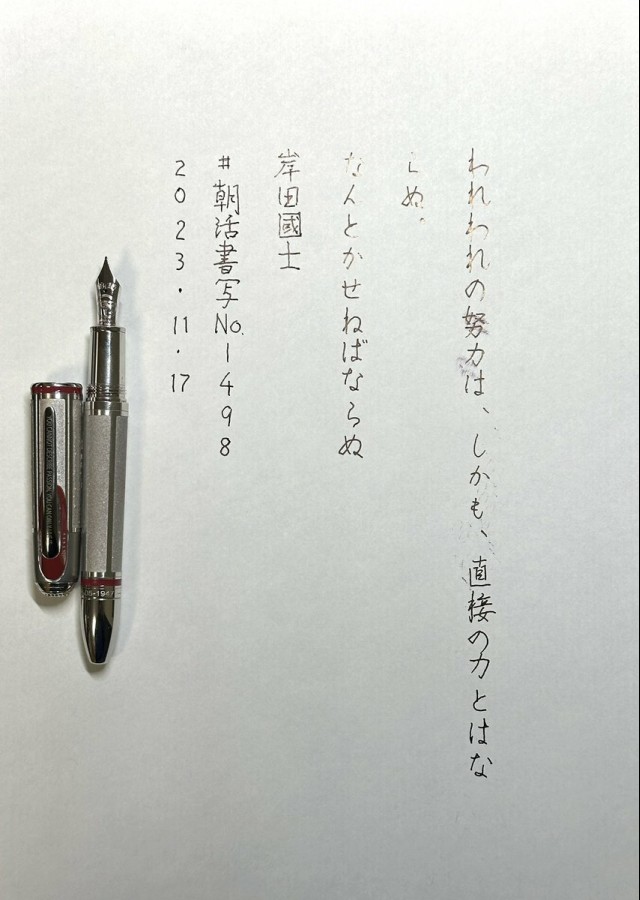 われわれの努力は、しかも、直接の力とはな
らぬ。
なんとかせねばならぬ
岸田國士
#朝活書写No.1498
2023・11・17